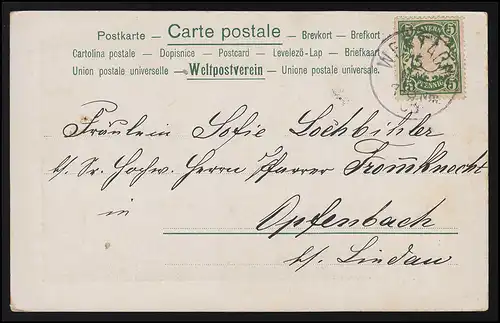 Postkarte - Carte postale - Brevkort - Brefkort
Cartolina postale - Dopisnice - Postcard - Levelező-Lap - Briefkaart
Union postale universelle - Weltpostverein - Unione postale universale.
BAYERN
5 5
PFENNIG
5 5
Fräulein Sofie Lochbihler
b/. Sr. Hochw. Herrn Pfarrer Fromknecht
in
Opfenbach
b/. Lindau